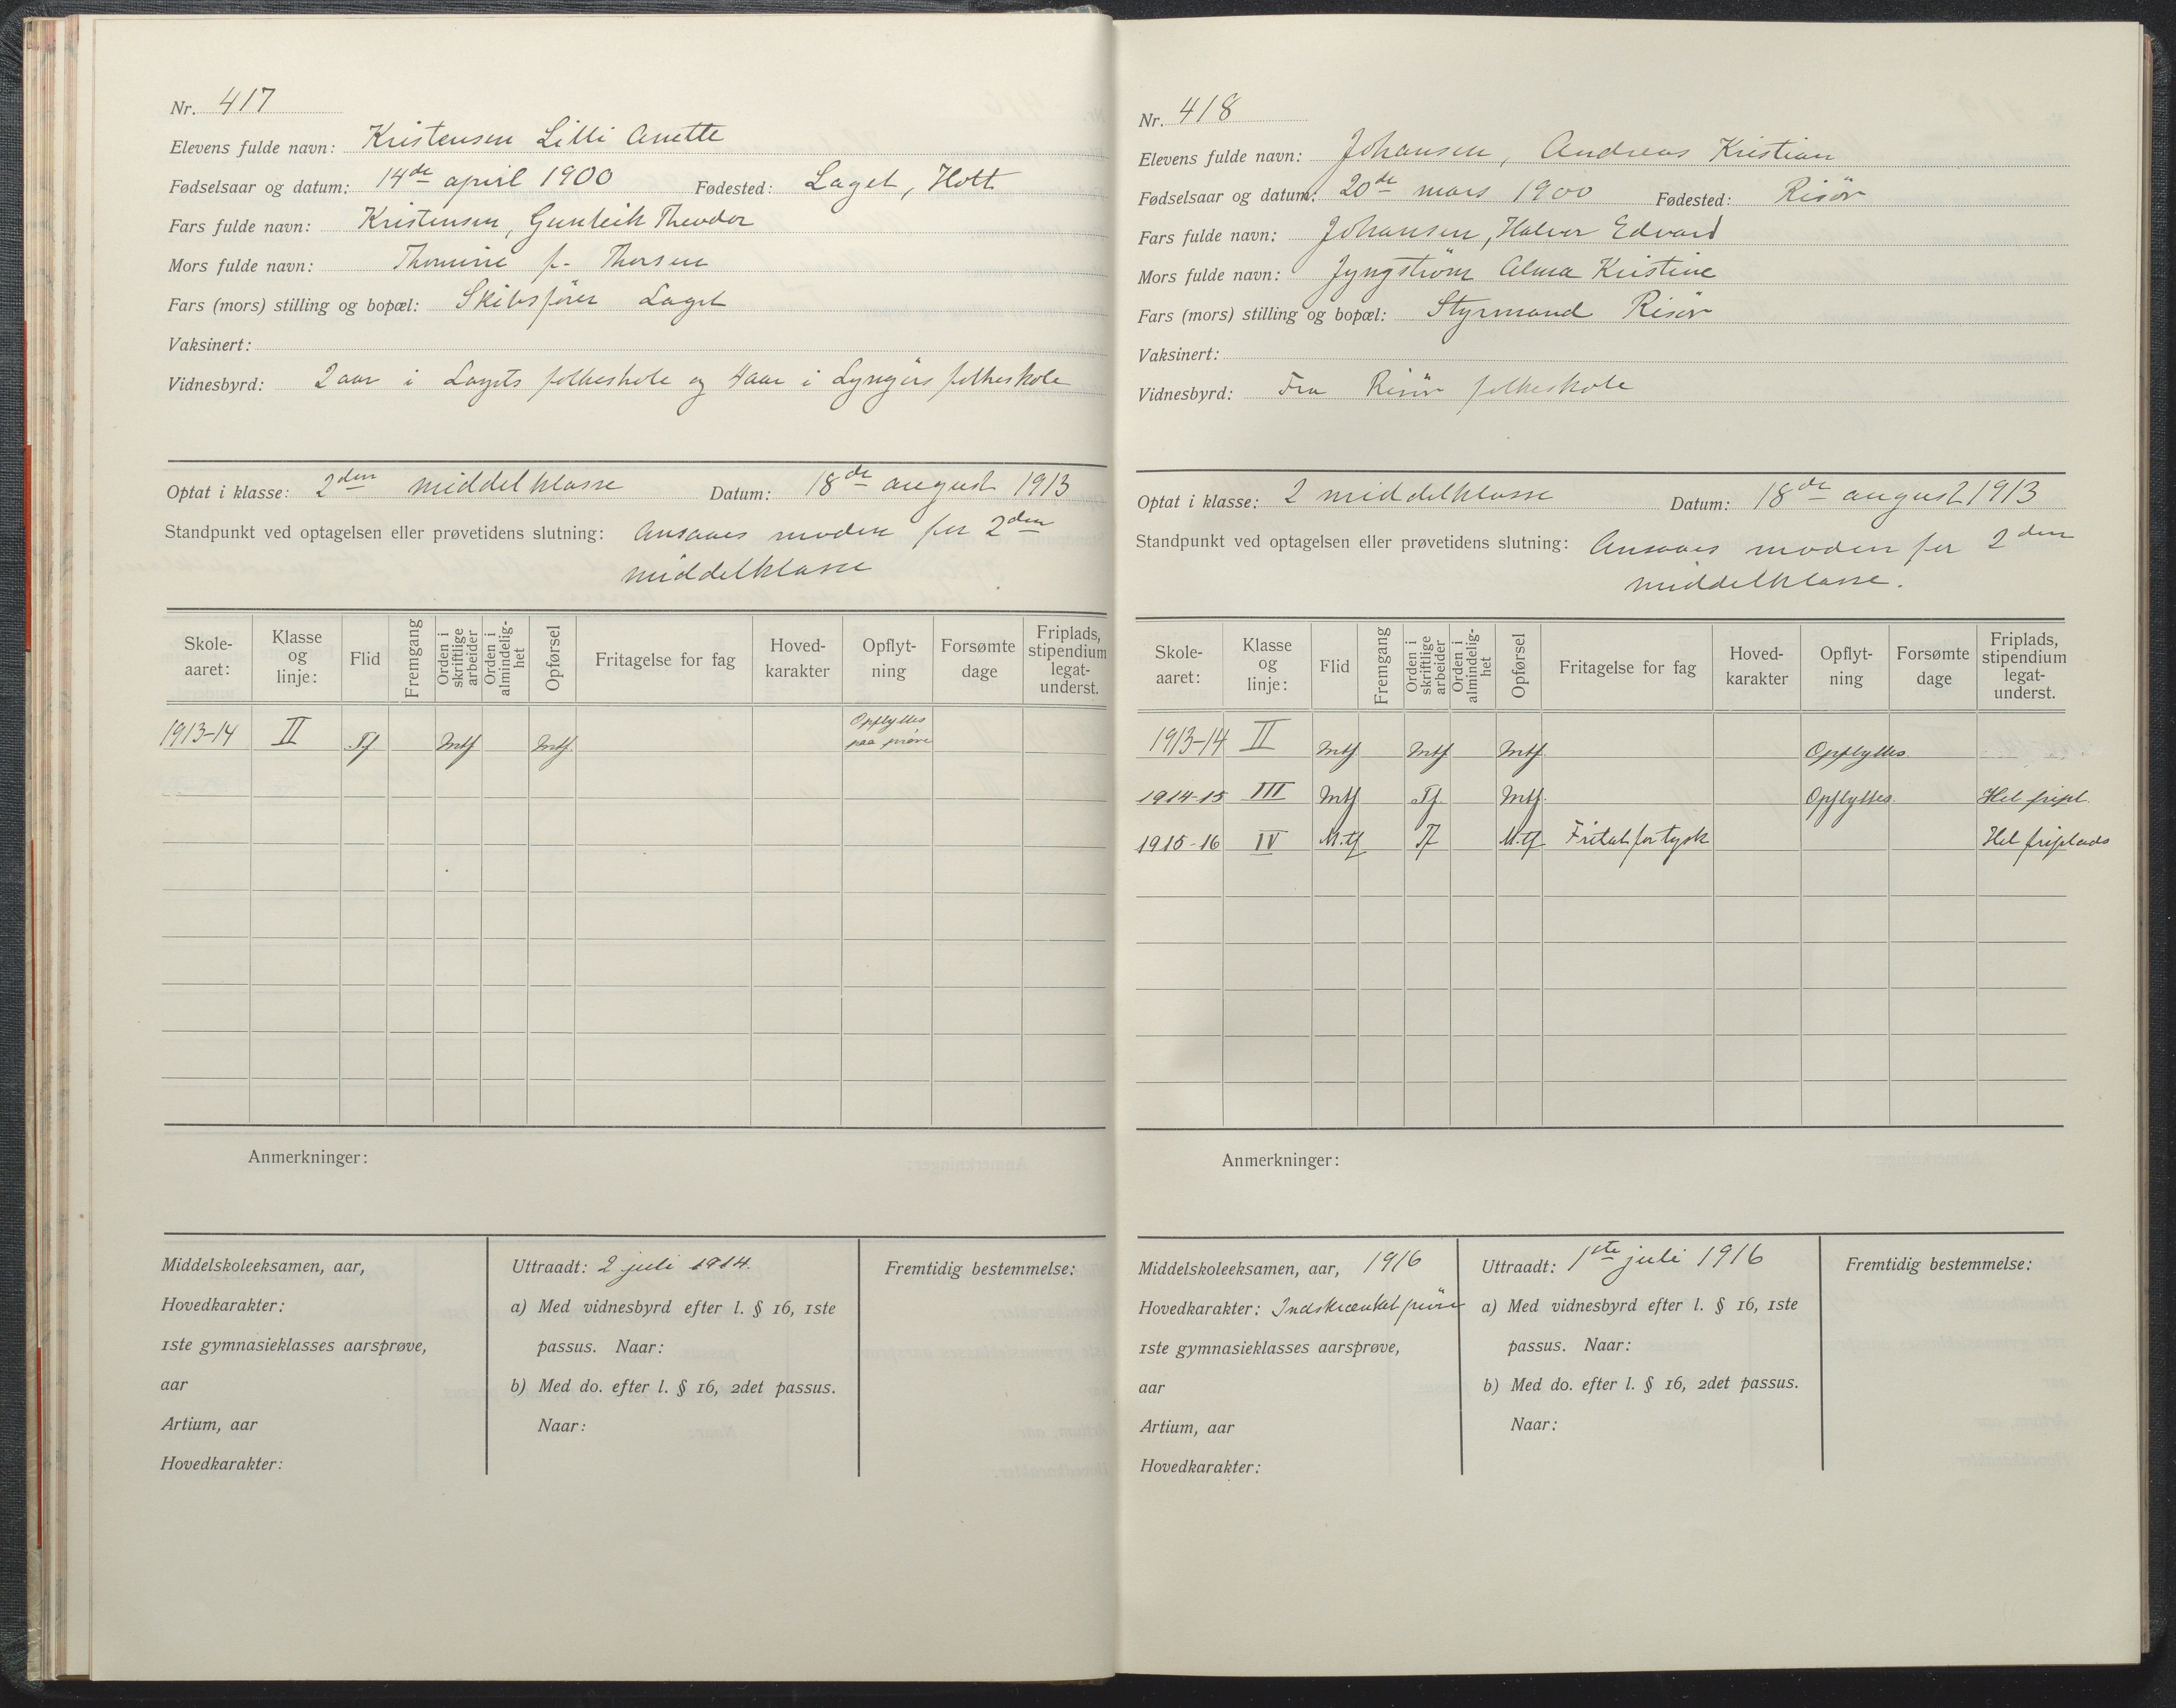 Nr. 417
Elevens fulde navn: Kristensen Lilli Anette
Fødselsaar og datum: 14de april 1900 Fødested: Laget, Holt
Fars fulde navn: Kristensen, Gunleik Theodor
Mors fulde navn: Thomine f. Thorsen
Fars (mors) stilling og bopæl: Skibsfører Laget
Vaksinert:
Vidnesbyrd: 2 aar i Lagets folkeskole og 4 aar i Lyngørs folkeskole
Optat i klasse: 2den middelklasse Datum: 18de august 1913
Standpunkt ved optagelsen eller prøvetidens slutning: Ansaaes moden for 2den
middelklasse
Skole-aaret: Klasse og linje: Flid Fremgang Orden i skriftlige arbeider Orden i almindelig-het Opførsel Fritagelse for fag Hoved-karakter Opflyt-ning Forsømte dage Friplads, stipendium legat-underst.
1913-14 II Tf Mtf Mtf. Opflyttes paa prøve
Anmerkninger:
Middelskoleeksamen, aar,
Hovedkarakter:
1ste gymnasieklasses aarsprøve,
aar
Artium, aar
Hovedkarakter:
Uttraadt: 2 juli 1914.
a) Med vidnesbyrd efter l. § 16, 1ste
passus. Naar:
b) Med do. efter l. § 16, 2det passus.
Naar:
Fremtidig bestemmelse:
Nr. 418
Elevens fulde navn: Johansen, Andreas Kristian
Fødselsaar og datum: 20de mars 1900 Fødested: Risør
Fars fulde navn: Johansen, Halvor Edvard
Mors fulde navn: Jyngstrøm Alma Kristine
Fars (mors) stilling og bopæl: Styrmand Risør
Vaksinert:
Vidnesbyrd: Fra Risør folkeskole
Optat i klasse: 2 middelklasse Datum: 18de august 1913
Standpunkt ved optagelsen eller prøvetidens slutning: Ansaaes moden for 2den
middelklasse.
Skole-aaret: Klasse og linje: Flid Fremgang Orden i skriftlige arbeider Orden i almindelig-het Opførsel Fritagelse for fag Hoved-karakter Opflyt-ning Forsømte dage Friplads, stipendium legat-underst.
1913-14 II Mtf Mtf Mtf. Opflyttes.
1914-15 III Mtf Tf. Mtf. Opflyttes. Hel fripl.
1915-16 IV M.tf Tf M.tf Fritat for tysk Hel friplads
Anmerkninger:
Middelskoleeksamen, aar, 1916
Hovedkarakter: Indskrænket prøve
1ste gymnasieklasses aarsprøve,
aar
Artium, aar
Hovedkarakter:
Uttraadt: 1ste juli 1916
a) Med vidnesbyrd efter l. § 16, 1ste
passus. Naar:
b) Med do. efter l. § 16, 2det passus.
Naar:
Fremtidig bestemmelse: